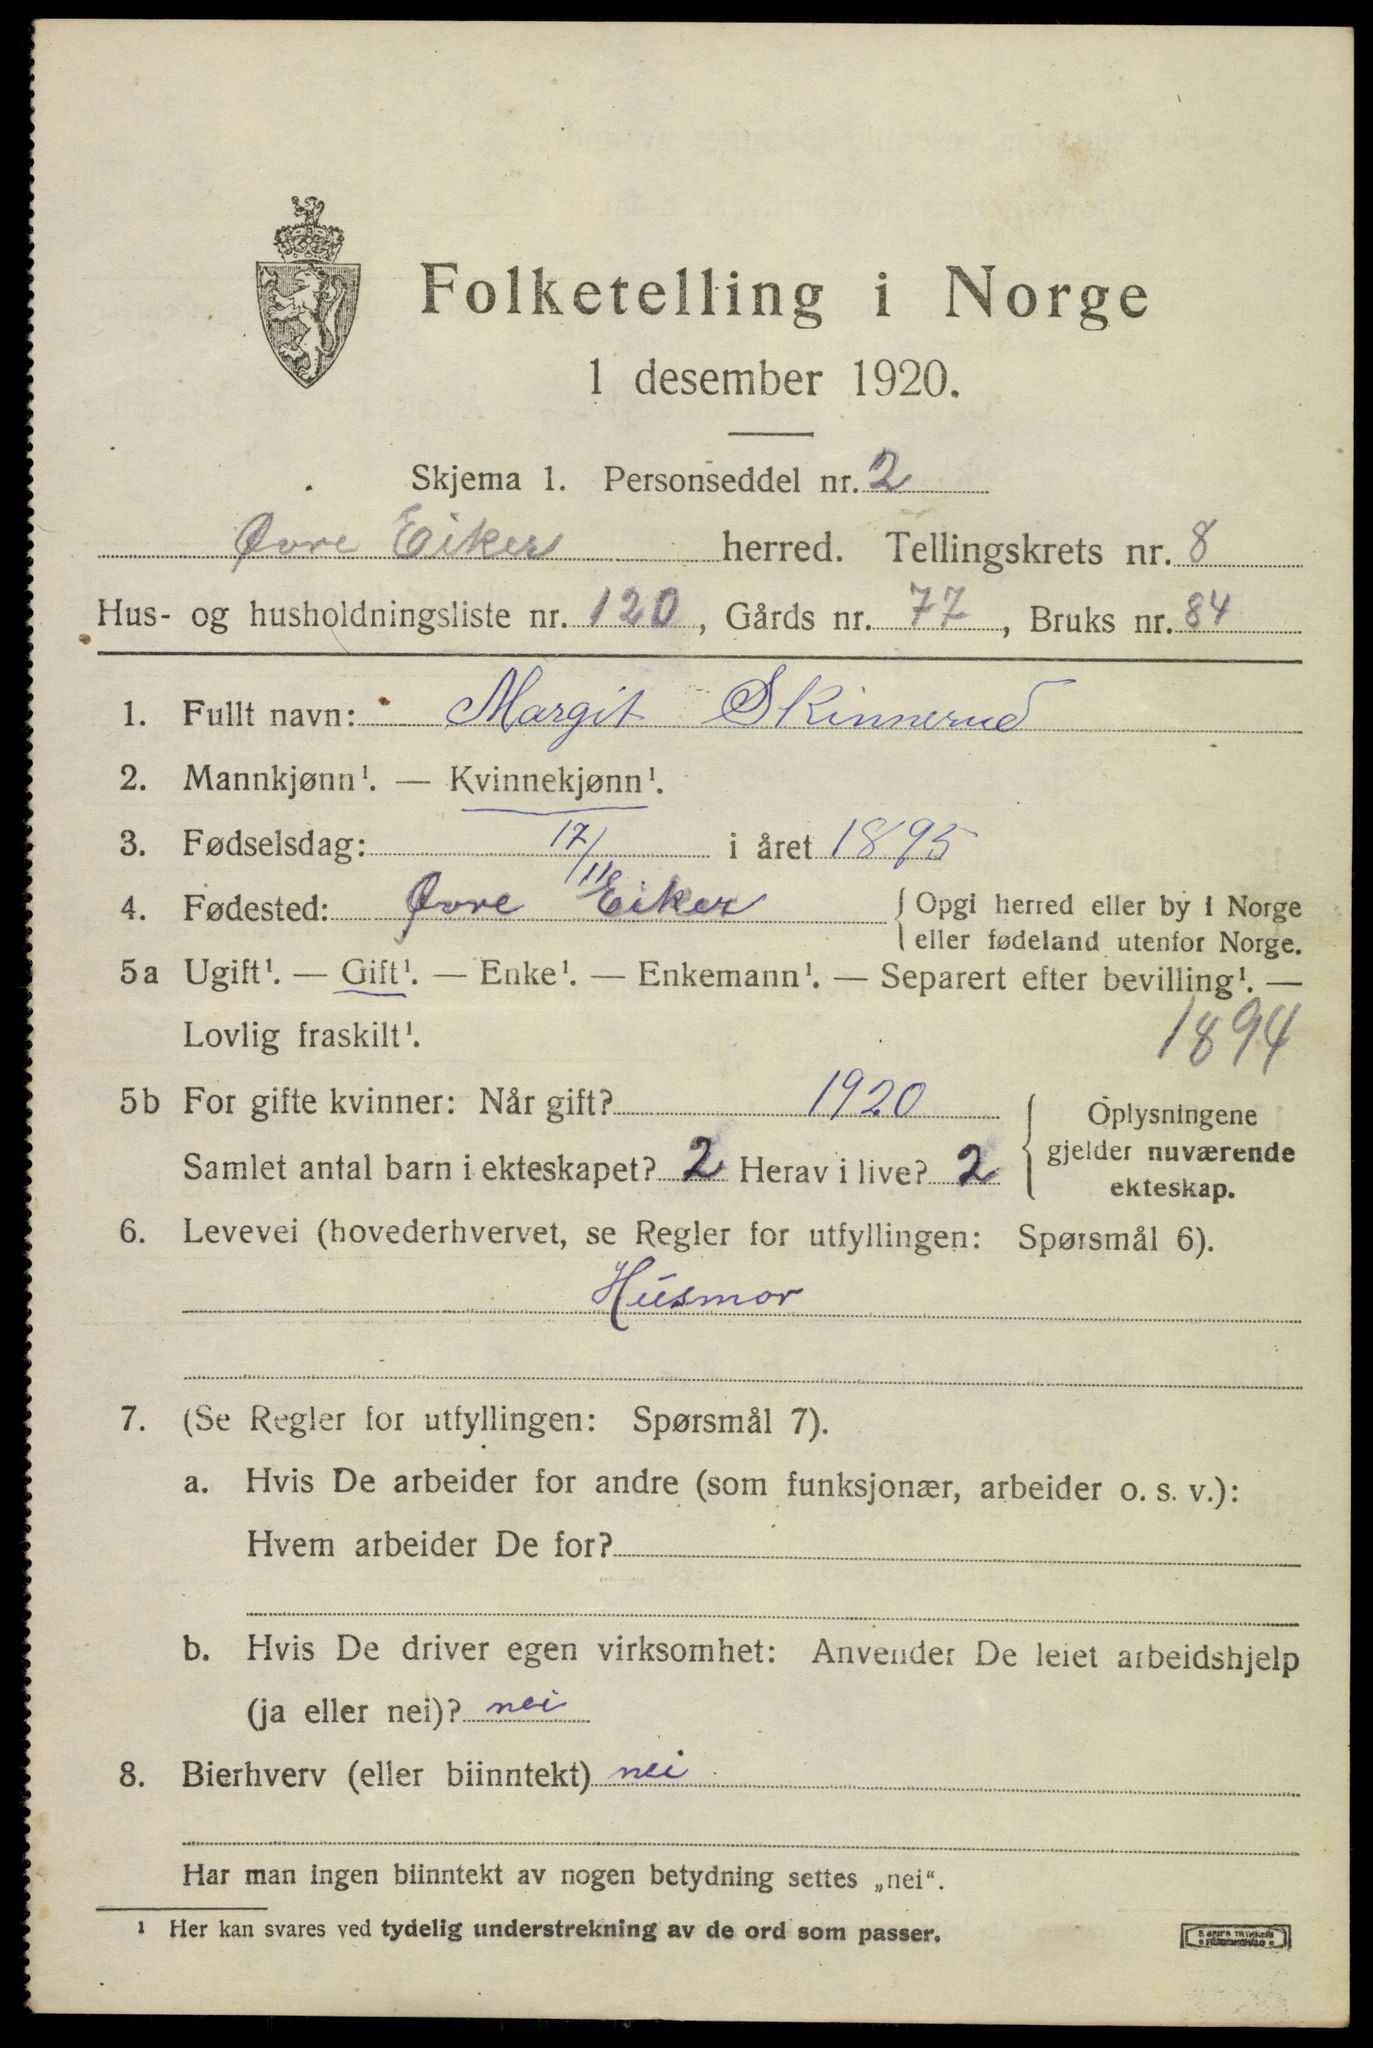 Folketelling i Norge
1 desember 1920.
Skjema 1. Personseddel nr. 2
Øvre Eiker herred. Tellingskrets nr. 8
Hus- og husholdningsliste nr. 120, Gårds nr. 77, Bruks nr. 84
1. Fullt navn: Margit Skinnerud
2. Mannkjønn¹. — Kvinnekjønn¹.
3. Fødselsdag: 17/11 i året 1895
4. Fødested: Øvre Eiker { Opgi herred eller by i Norge
eller fødeland utenfor Norge.
5a Ugift¹. — Gift¹. — Enke¹. — Enkemann¹. — Separert efter bevilling¹. —
Lovlig fraskilt¹. 1894
5b For gifte kvinner: Når gift? 1920 { Oplysningene
gjelder nuværende
Samlet antal barn i ekteskapet? 2 Herav i live? 2 ekteskap.
6. Levevei (hovederhvervet, se Regler for utfyllingen: Spørsmål 6).
Husmor
7. (Se Regler for utfyllingen: Spørsmål 7).
a. Hvis De arbeider for andre (som funksjonær, arbeider o. s. v.):
Hvem arbeider De for?
b. Hvis De driver egen virksomhet: Anvender De leiet arbeidshjelp
(ja eller nei)? nei
8. Bierhverv (eller biinntekt) nei
Har man ingen biinntekt av nogen betydning settes „nei“.
¹ Her kan svares ved tydelig understrekning av de ord som passer.